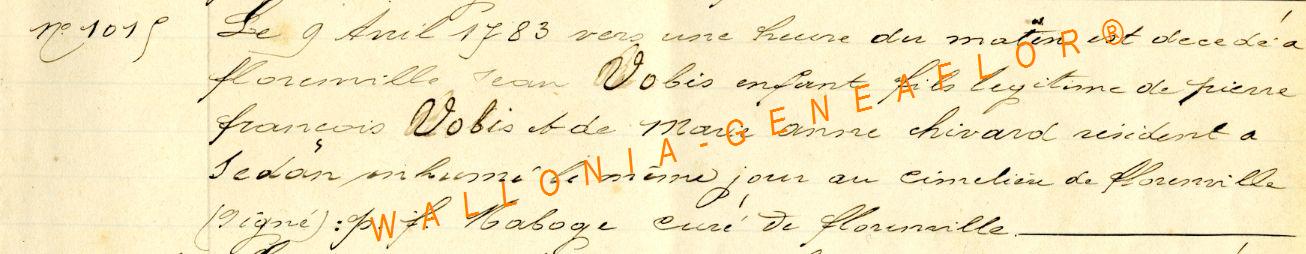 n° 1015 Le 9 Avril 1783 vers une heure du matin est decedé a
florenville Jean Vobis enfant fils legitime de pierre
francois Vobis et de Marie anne chivard resident a
Sedan inhumé le même jour au cimetière de florenville
(Signé) : p. f. Naboge curé de florenville.
WALLONIA-GENEAFLOR®